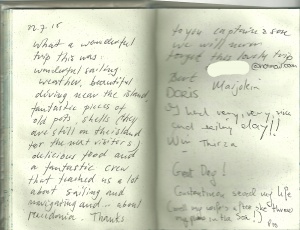 22.7.15
What a wonderful
trip this was:
wonderful sailing
weather, beautiful
diving near the island,
fantastic pieces of
old pots, shells (they
are still on the island
for the next visitors)
delicious food and
a fantastic crew
that teached us a lot
about sailing and
navigating and.. about
Macedonia. Thanks
to you captain & son
we will never
forget this lovely trip
@hotmail.com
Bert
Doris Marjolein
I had very, very nice
and sailing day!!
Wim
Great Day!
my life
(until my wife's
in the Sea!)